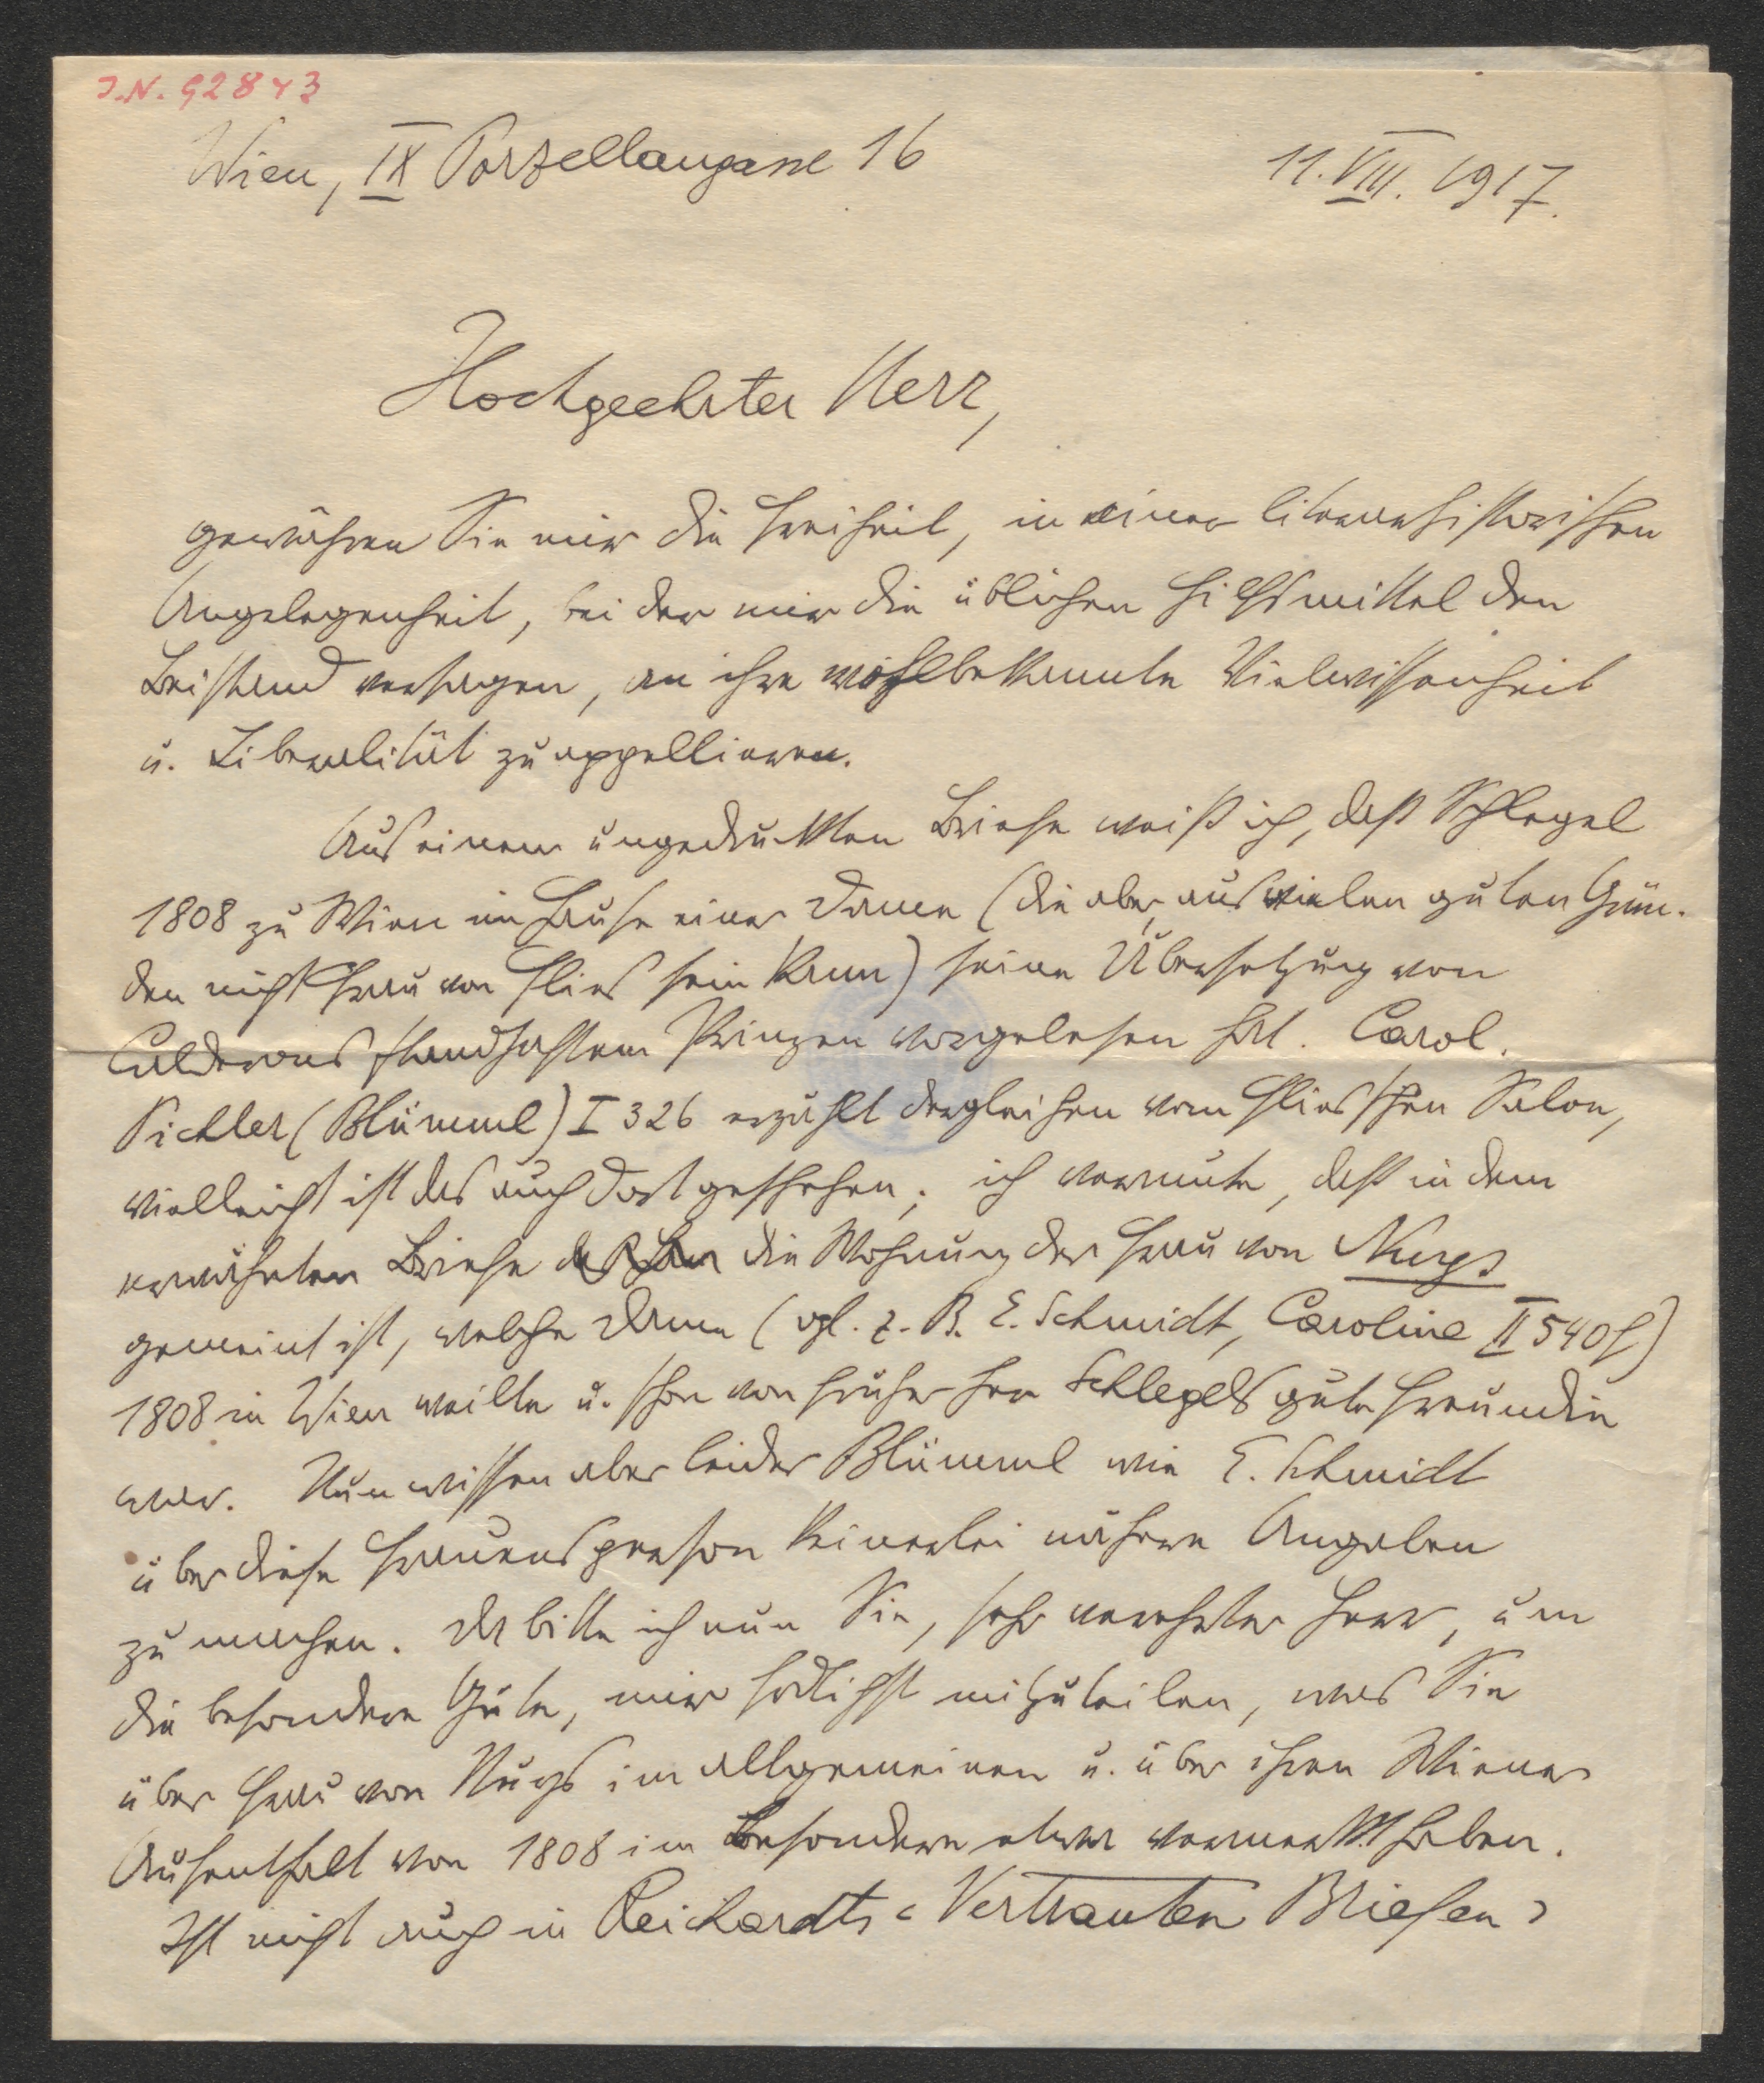 J.N. 92843
Wien, IX Porzellangasse 16
11. VIII. 1917.
Hochgeehrter Herr,
gewähren Sie mir die Freiheit, in einer literarhistorischen
Angelegenheit, bei der mir die üblichen Hilfsmittel den
Beistand versagen, an ihre wohlbekannte Vielwissenheit
u. Liberalität zu appellieren.
Aus einem ungedruckten Briefe weiß ich, daß Schlegel
1808 zu Wien im Hause einer Dame (die aber aus vielen guten Grün-
den nicht Frau von Flies sein kann) seine Übersetzung von
Calderons standhaftem Prinzen vorgelesen hat. Carol.
Pichler (Blümml) I 326 erzählt dergleichen vom Flies'schen Salon,
vielleicht ist das auch dort geschehen; ich vermute, daß in dem
erwähnten Briefe die Wohnung der Frau von Nuys
gemeint ist, welche Dame (vgl. z. B. E. Schmidt, Caroline II 540f)
1808 in Wien weilte u. schon von früher her Schlegels gute Freundin
war. Nun wissen aber leider Blümml wie E. Schmidt
über diese Frauensperson keinerlei nähere Angaben
zu machen. Da bitte ich nun Sie, sehr verehrter Herr, um
die besondere Güte, mir gütigst mitzuteilen, was Sie
über Frau von Nuys im allgemeinen u. über ihren Wiener
Aufenthalt von 1808 im Besondern etwa vermerkt haben.
Ist nicht auch in Reichardts "Vertrauten Briefen"